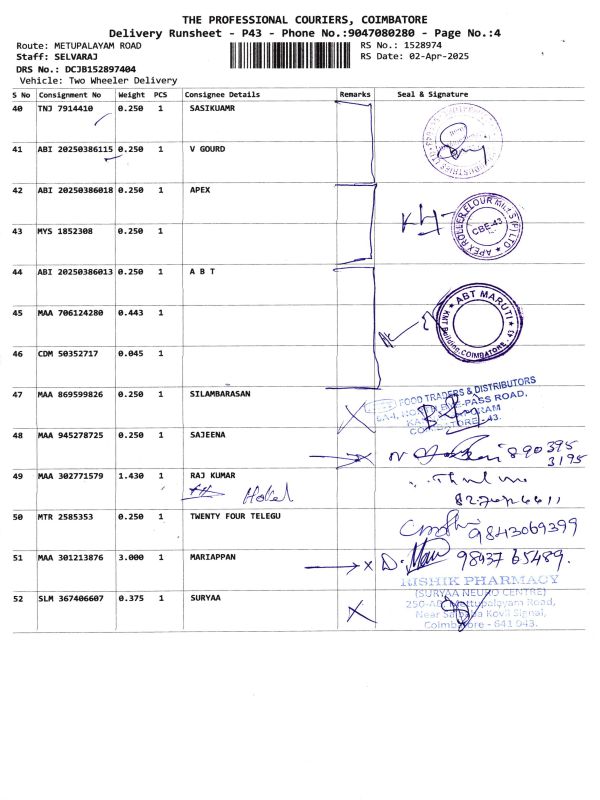 THE PROFESSIONAL COURIERS, COIMBATORE
Delivery Runsheet - P43 - Phone No.:9047080280 - Page No.:4
Route: METUPALAYAM ROAD RS No.: 1528974
Staff: SELVARAJ RS Date: 02-Apr-2025
DRS No.: DCJB152897404
Vehicle: Two Wheeler Delivery
S No Consignment No Weight PCS Consignee Details Remarks Seal & Signature
40 TNJ 7914410 0.250 1 SASIKUAMR
41 ABI 20250386115 0.250 1 V GOURD
42 ABI 20250386018 0.250 1 APEX
APEX ROLLER FLOUR MILLS (P) LTD
CBE-43
43 MYS 1852308 0.250 1
44 ABI 20250386013 0.250 1 A B T
ABT MARUTI
KMT Building, COIMBATORE - 43
45 MAA 706124280 0.443 1
46 CDM 50352717 0.045 1
47 MAA 869599826 0.250 1 SILAMBARASAN
FOOD TRADERS & DISTRIBUTORS
BYE-PASS ROAD,
COIMBATORE - 43.
48 MAA 945278725 0.250 1 SAJEENA
890395
3195
49 MAA 302771579 1.430 1 RAJ KUMAR
Hotel
50 MTR 2585353 0.250 1 TWENTY FOUR TELEGU
9843069399
51 MAA 301213876 3.000 1 MARIAPPAN
98437 65489.
RISHIK PHARMACY
52 SLM 367406607 0.375 1 SURYAA
(SURYAA NEURO CENTRE)
Mettupalayam Road,
Near Saibaba Kovil Signal,
Coimbatore - 641 043.